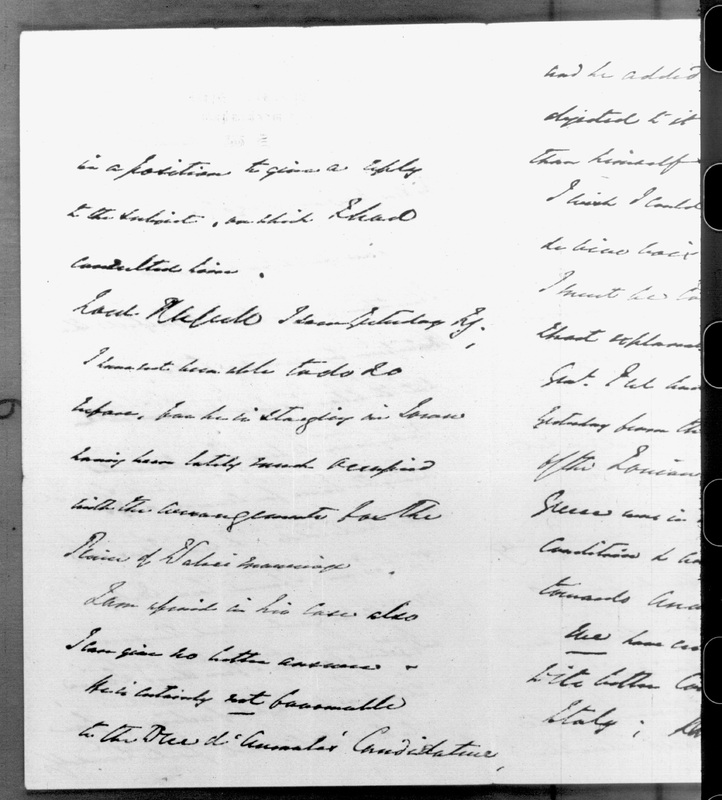 in a position to give a reply
to the subject, on which I had
consulted him.
Lord Russell I saw yesterday
I have not been able to do so
before, for he is staying in Town
having been lately much occupied
with the arrangements for the
Prince of Wales's marriage.
I am afraid in his case also
I can give no better answer.
He is certainly not favourable
to the Duc d'Aumale's Candidature,
and he added
objected to it
than himself
I wish I could
de vive voix
I must be
short explana
Genl. Peel had
yesterday from the
of the Ionian
Greece was in
condition to
towards
We have
with better
Italy;